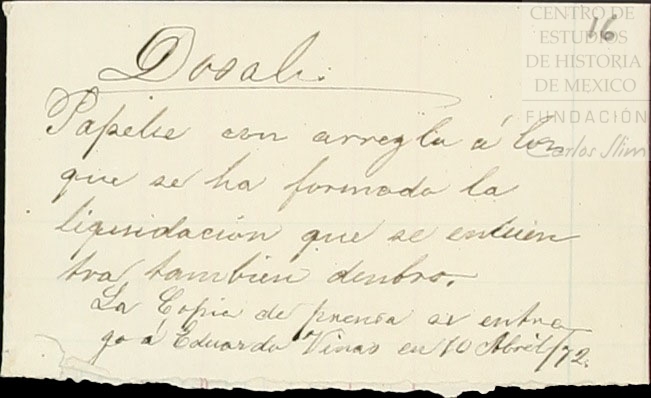 CENTRO DE
ESTUDIOS
DE HISTORIA
DE MEXICO
FUNDACIÓN
Carlos Slim
16
Dosal.
Papeles con arreglo á los
que se ha formado la
liquidación que se encuen
tra también dentro.
La Copia de prensa se entre-
gó á Eduardo Viñas en 10 Abril/72.